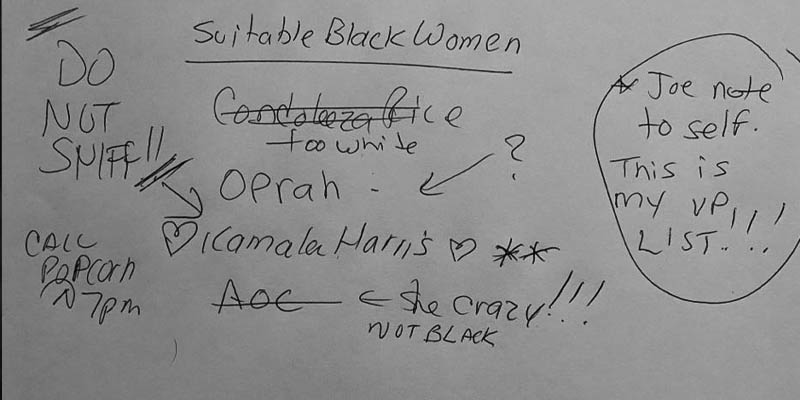 Suitable Black Women
DO
NOT
SNIFF!!
Condoleeza Rice
too white
Oprah - ?
♡ Kamala Harris ♡ **
AOC ← She crazy!!!
NOT BLACK
CALL
PoPCorn
~ 7pm
* Joe note
to self.
This is
my VP
LIST!!!